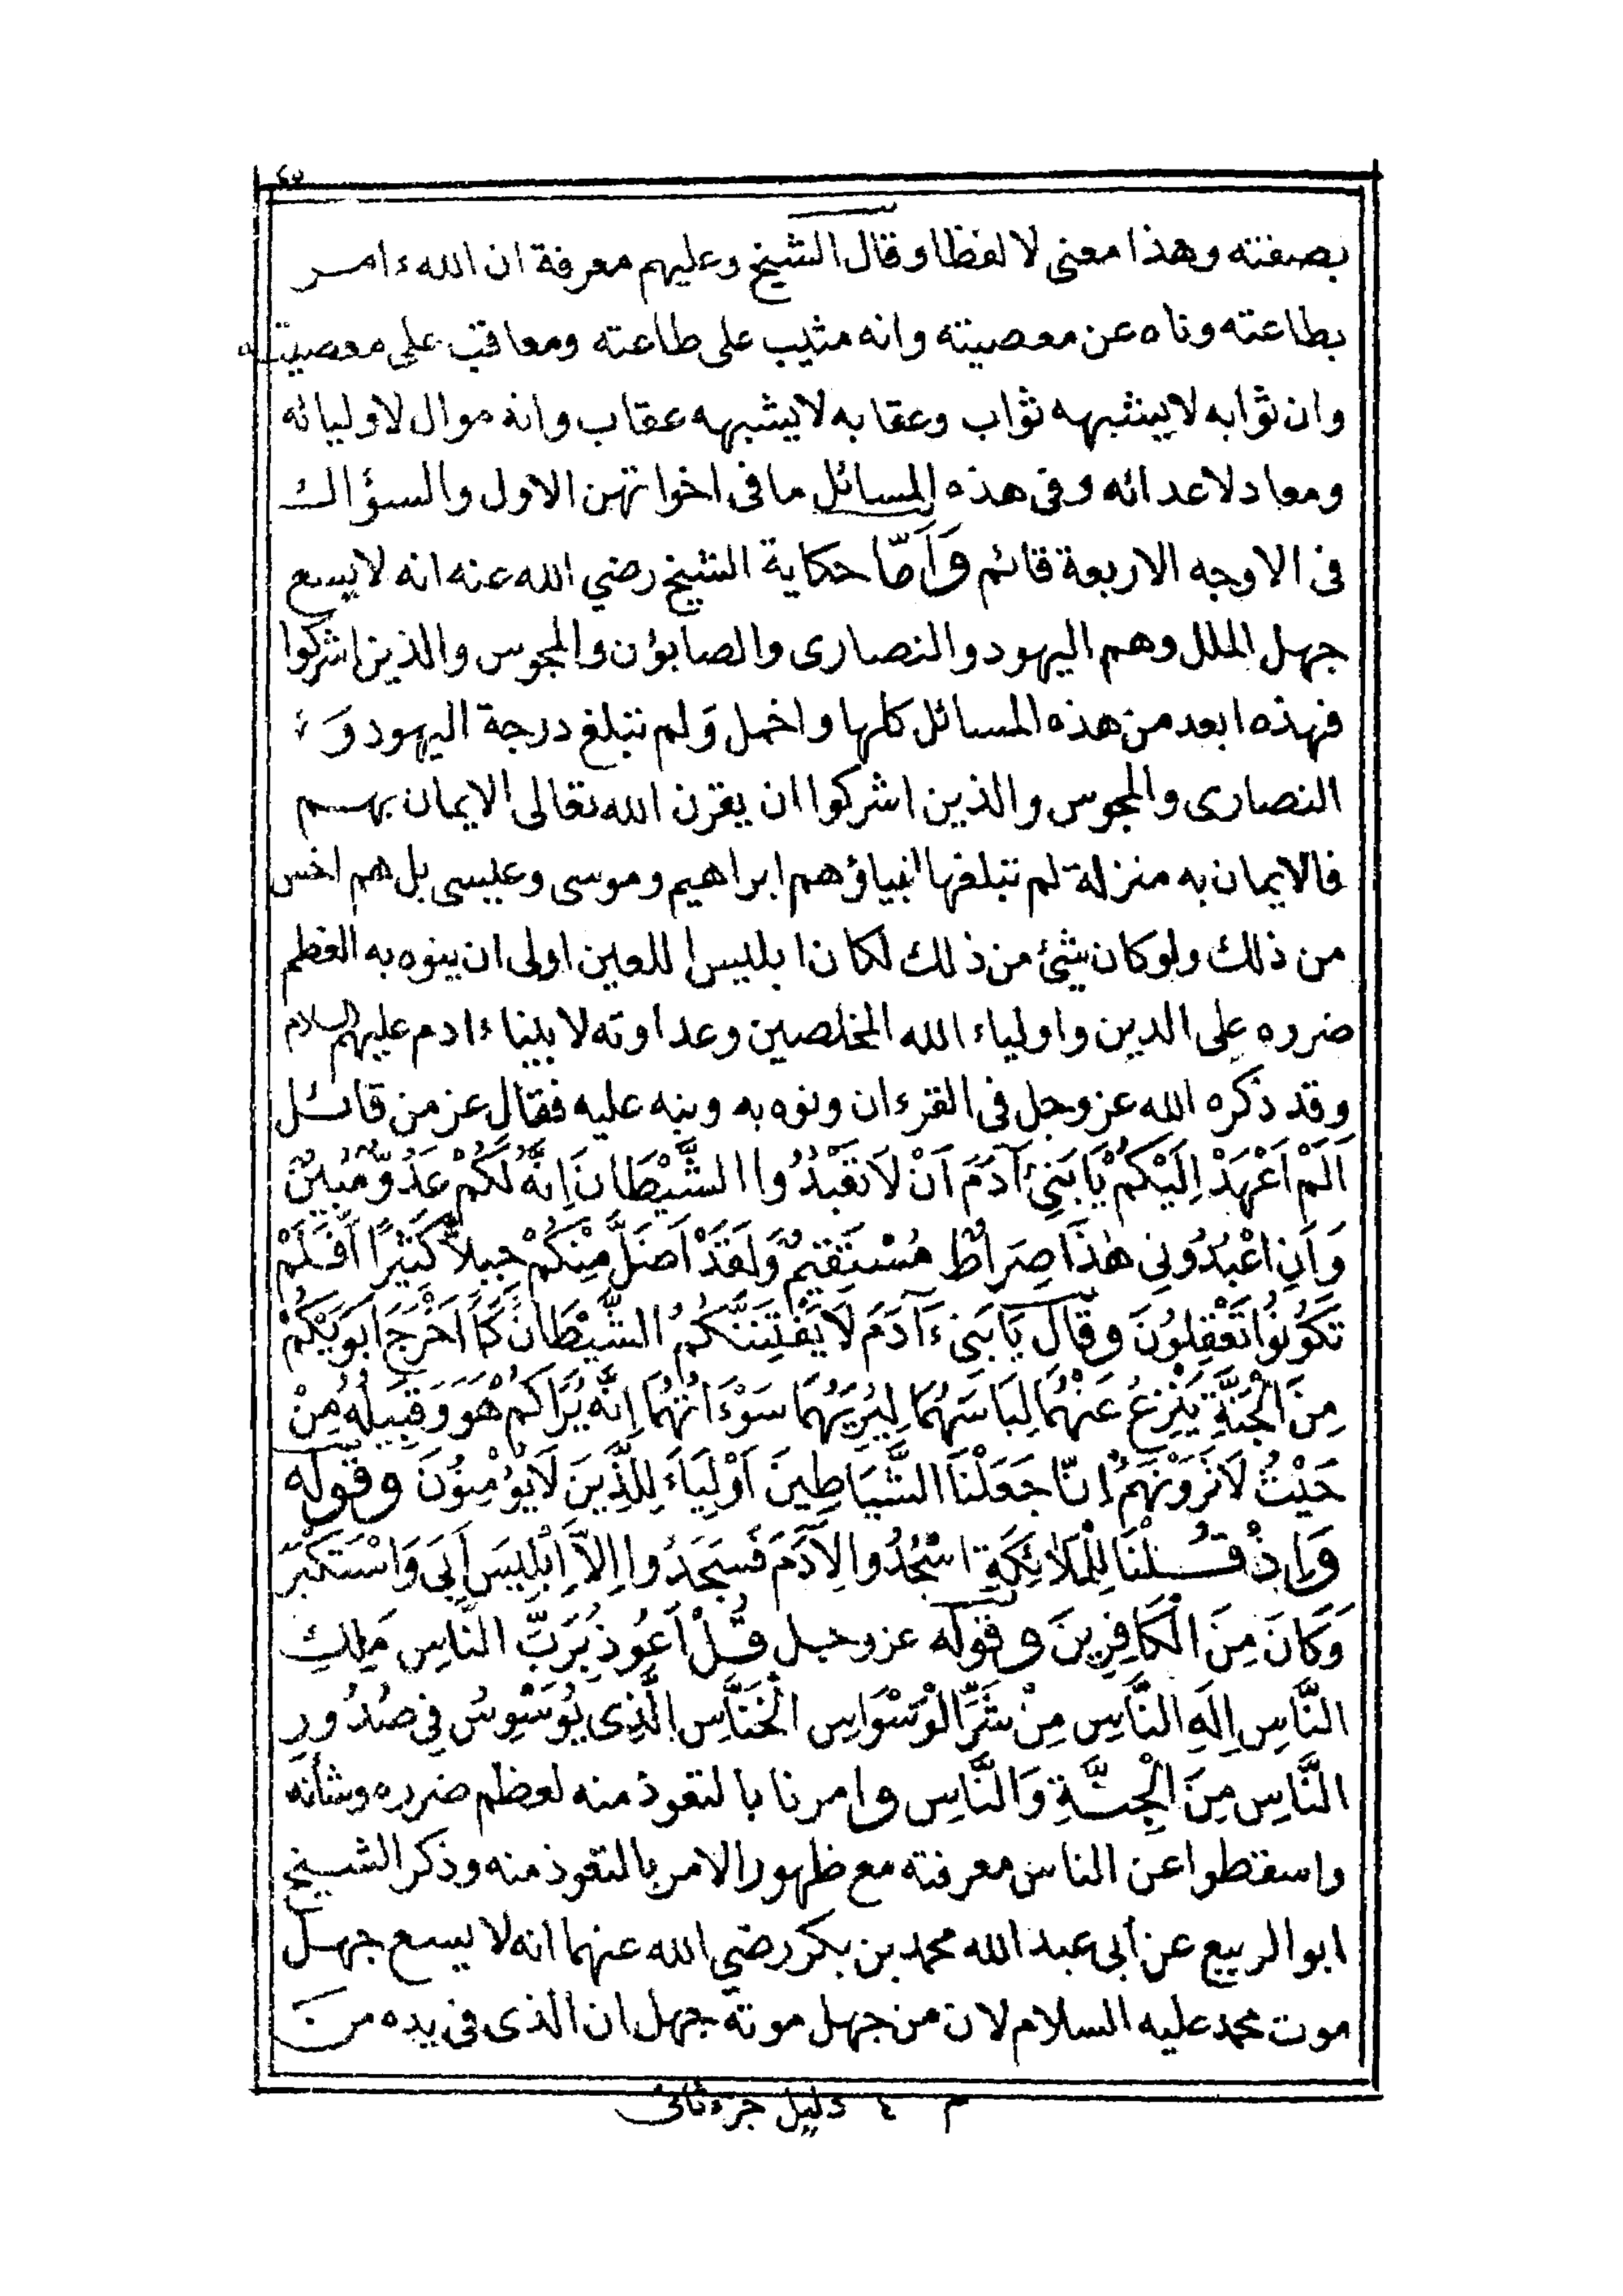 بصفته وهذا معنى لا لفظا وقال الشيخ وعليهم معرفة ان الله ءامر
بطاعته وناه عن معصيته وانه مثيب على طاعته ومعاقب على معصيته
وان ثوابه لا يشبهه ثواب وعقابه لا يشبهه عقاب وانه موال لاوليائه
ومعاد لاعدائه وفى هذه المسائل ما فى اخواتهن الاول والسؤال
فى الاوجه الاربعة قائم وَاَمّا حكاية الشيخ رضي الله عنه انه لا يسع
جهل الملل وهم اليهود والنصارى والصابؤن والمجوس والذين اشركوا
فهذه ابعد من هذه المسائل كلها واخمل وَلم تبلغ درجة اليهود وَ
النصارى والمجوس والذين اشركوا ان يقرن الله تعالى الايمان بهم
فالايمان به منزلة لم تبلغها انبياؤهم ابراهيم وموسى وعيسى بل هم اخس
من ذلك ولو كان شئ من ذلك لكان ابليس اللعين اولى ان ينوه به العظم
ضرره على الدين واولياء الله المخلصين وعداوته لابيناء ادم عليهم السلام
وقد ذكره الله عز وجل فى القرءان ونوه به ونبه عليه فقال عز من قائل
اَلَمْ اَعْهَدْ اِلَيْكُمْ يَا بَنِئ آدَمَ اَنْ لَا تَعْبُدُوا الشَّيْطَانَ اِنَّهُ لَكُمْ عَدُوٌّ مُبِينٌ
وَاَنِ اعْبُدُونِى هٰذَا صِرَاطٌ مُسْتَقِيمٌ وَلَقَدْ اَضَلَّ مِنْكُمْ جِبِلاًّ كَثِيرًا اَفَلَمْ
تَكُونُوا تَعْقِلُونَ وقال يَا بَنِى ءَآدَمَ لَا يَفْتِنَنَّكُمُ الشَّيْطَانُ كَمَا اَخْرَجَ اَبَوَيْكُمْ
مِنَ الْجَنَّةِ يَنْزِعُ عَنْهُمَا لِبَاسَهُمَا لِيُرِيَهُمَا سَوْءَاتُهُمَا اِنَّهُ يُرَاكُمْ هُوَ وَقَبِيلُهُ مِنْ
حَيْثُ لَا تَرَوْنَهُمُ اِنَّا جَعَلْنَا الشَّيَاطِينَ اَوْلِيَاءَ لِلَّذِينَ لَا يُؤْمِنُونَ وقوله
وَاِذْ قُلْنَا لِلْمَلَائِكَةِ اسْجُدُوا لِآدَمَ فَسَجَدُوا اِلاَّ اِبْلِيسَ اَبَى وَاسْتَكْبَرَ
وَكَانَ مِنَ الْكَافِرِينَ وقوله عز وجل قُلْ اَعُوذُ بِرَبِّ النَّاسِ مَلِكِ
النَّاسِ اِلَهِ النَّاسِ مِنْ شَرِّ الْوَسْوَاسِ الْخَنَّاسِ الَّذِى يُوَسْوِسُ فِى صُدُورِ
النَّاسِ مِنَ الْجِنَّةِ وَالنَّاسِ وامرنا بالتعوذ منه لعظم ضرره وشأنه
واسقطوا عن الناس معرفته مع ظهور الامر بالتعوذ منه وذكر الشيخ
ابو الربيع عن أبى عبد الله محمد بن بكر رضي الله عنهما انه لا يسع جهل
موت محمد عليه السلام لان من جهل موته جهل ان الذى فى يده من
م ٤ دليل جزء ثانى